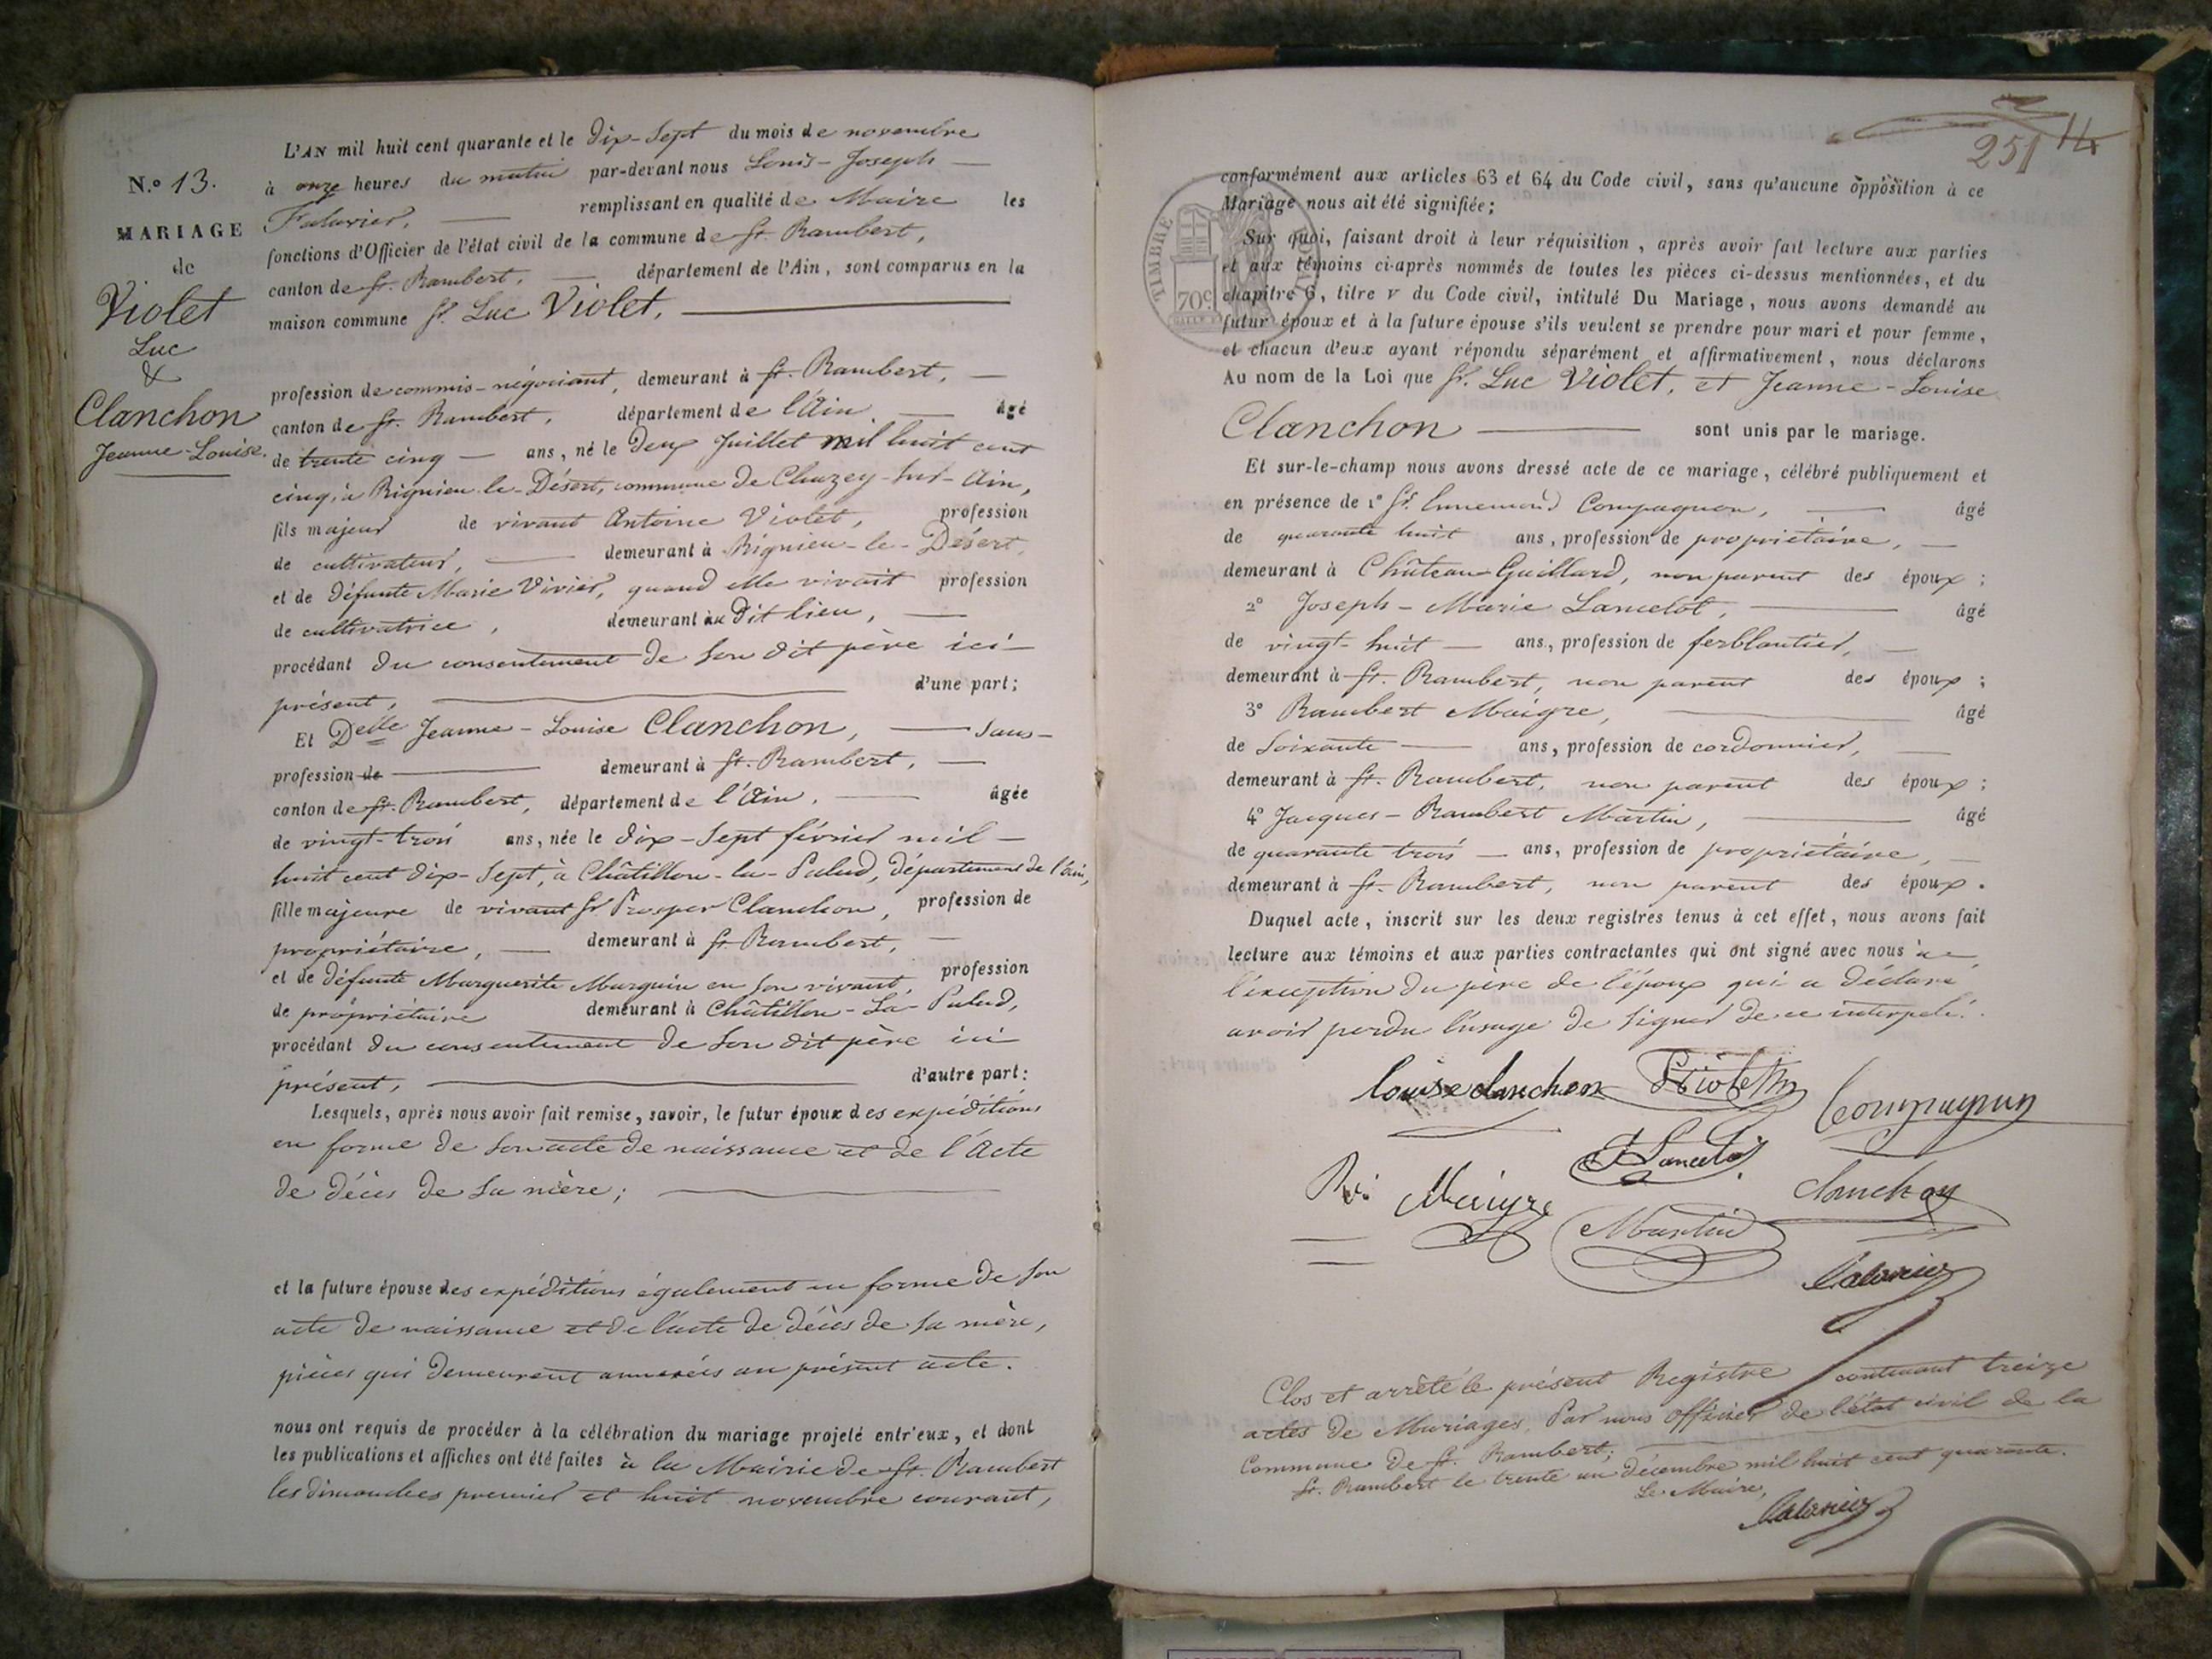 N.o 13.
MARIAGE
de
Violet
Luc
&
Clanchon
Jeanne-Louise.
L'AN mil huit cent quarante et le dix-sept du mois de novembre
à onze heures du matin par-devant nous Louis-Joseph
Falavier, remplissant en qualité de Maire les
fonctions d'Officier de l'état civil de la commune de St. Rambert,
canton de St. Rambert, département de l'Ain, sont comparus en la
maison commune Sr. Luc Violet,
profession de commis-négociant, demeurant à St. Rambert,
canton de St. Rambert, département de l'Ain, âgé
de trente cinq ans, né le deux Juillet mil huit cent
cinq, à Rignieu-le-Désert, commune de Chazey-sur-Ain,
fils majeur de vivant Antoine Violet, profession
de cultivateur, demeurant à Rignieu-le-Désert,
et de défunte Marie Vivier, quand elle vivait profession
de cultivatrice, demeurant au dit lieu,
procédant du consentement de son dit père ici
présent, d'une part;
Et Delle Jeanne-Louise Clanchon, sans
profession de demeurant à St. Rambert,
canton de St. Rambert, département de l'Ain, âgée
de vingt-trois ans, née le dix-sept février mil
huit cent dix-sept, à Châtillon-la-Palud, département de l'Ain,
fille majeure de vivant Sr Prosper Clanchon, profession de
propriétaire, demeurant à St. Rambert,
et de défunte Marguerite Marguin en son vivant, profession
de propriétaire demeurant à Châtillon-La-Palud,
procédant du consentement de son dit père ici
présent, d'autre part:
Lesquels, après nous avoir fait remise, savoir, le futur époux des expéditions
en forme de son acte de naissance et de l'acte
de décès de sa mère;
et la future épouse des expéditions également en forme de son
acte de naissance et de l'acte de décès de sa mère,
pièces qui demeurent annexées au présent acte.
nous ont requis de procéder à la célébration du mariage projeté entr'eux, et dont
les publications et affiches ont été faites à la Mairie de St. Rambert
les dimanches premier et huit novembre courant,
251 14
TIMBRE
70c
conformément aux articles 63 et 64 du Code civil, sans qu'aucune opposition à ce
Mariage nous ait été signifiée;
Sur quoi, faisant droit à leur réquisition, après avoir fait lecture aux parties
et aux témoins ci-après nommés de toutes les pièces ci-dessus mentionnées, et du
chapitre 6, titre v du Code civil, intitulé Du Mariage, nous avons demandé au
futur époux et à la future épouse s'ils veulent se prendre pour mari et pour femme,
et chacun d'eux ayant répondu séparément et affirmativement, nous déclarons
Au nom de la Loi que Sr. Luc Violet, et Jeanne-Louise
Clanchon sont unis par le mariage.
Et sur-le-champ nous avons dressé acte de ce mariage, célébré publiquement et
en présence de 1° Sr. Ennemond Compagnon, âgé
de quarante huit ans, profession de propriétaire,
demeurant à Château-Gaillard, non parent des époux;
2° Joseph-Marie Lancelot, âgé
de vingt-huit ans, profession de ferblantier,
demeurant à St. Rambert, non parent des époux;
3° Rambert Maigre, âgé
de soixante ans, profession de cordonnier,
demeurant à St. Rambert, non parent des époux;
4° Jacques-Rambert Martin, âgé
de quarante trois ans, profession de propriétaire,
demeurant à St. Rambert, non parent des époux.
Duquel acte, inscrit sur les deux registres tenus à cet effet, nous avons fait
lecture aux témoins et aux parties contractantes qui ont signé avec nous à
l'exception du père de l'époux qui a déclaré
avoir perdu l'usage de signer de ce interpelé.
Louise clanchon Violet
Compagnon
Lancelot
Maigre
clanchon
Martin
Falavier
Clos et arrêté le présent Registre contenant treize
actes de Mariages, Par nous officier de l'état civil de la
Commune de St. Rambert;
St. Rambert le trente un décembre mil huit cent quarante.
Le Maire,
Falavier